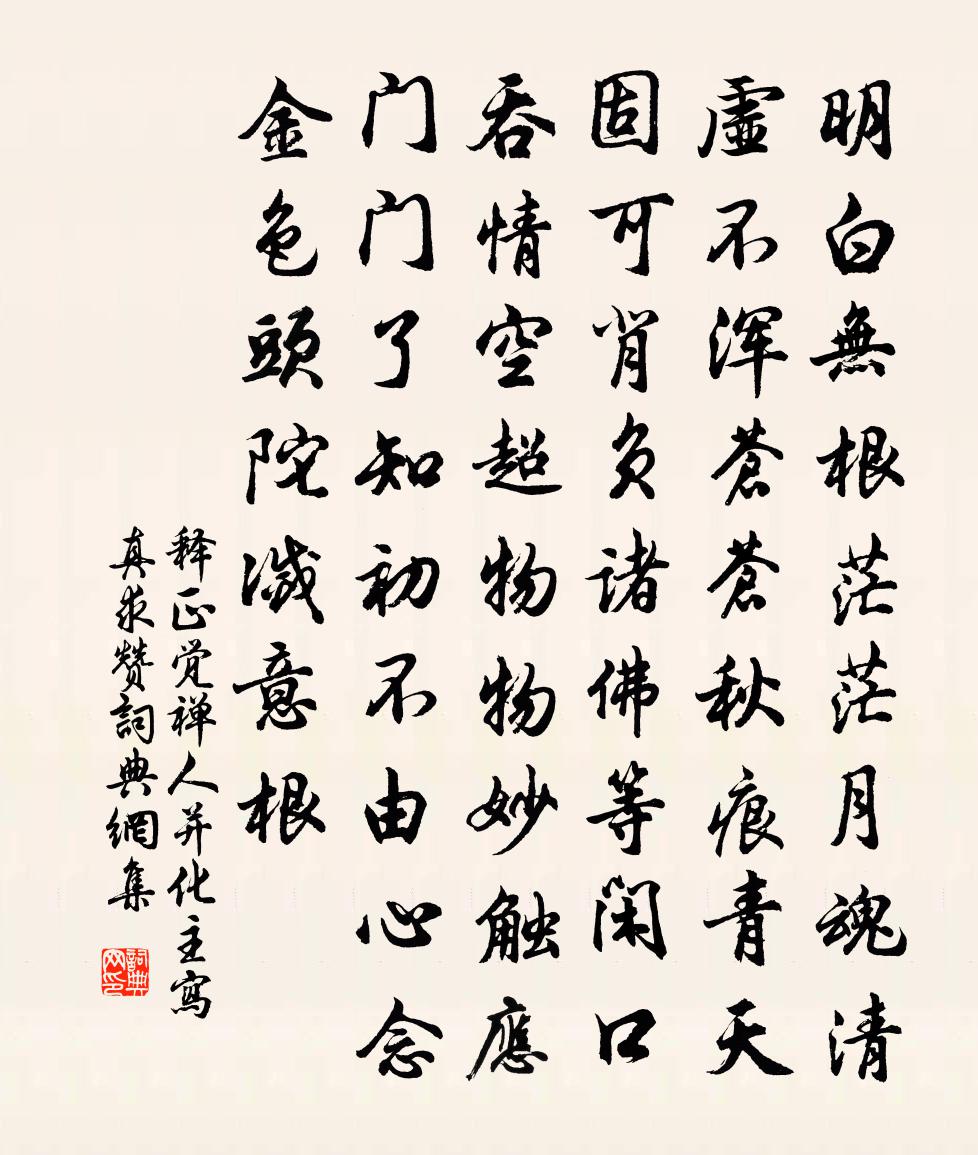 明白無根茫茫月魂清
虛不渾蒼蒼秋痕青天
固可肖负諸佛等闲口
吞情空超物物妙触應
门门了知初不由心念
金色頭陀滅意根
释正觉禅人并化主寫
真求赞詞典網集
詞典
网印